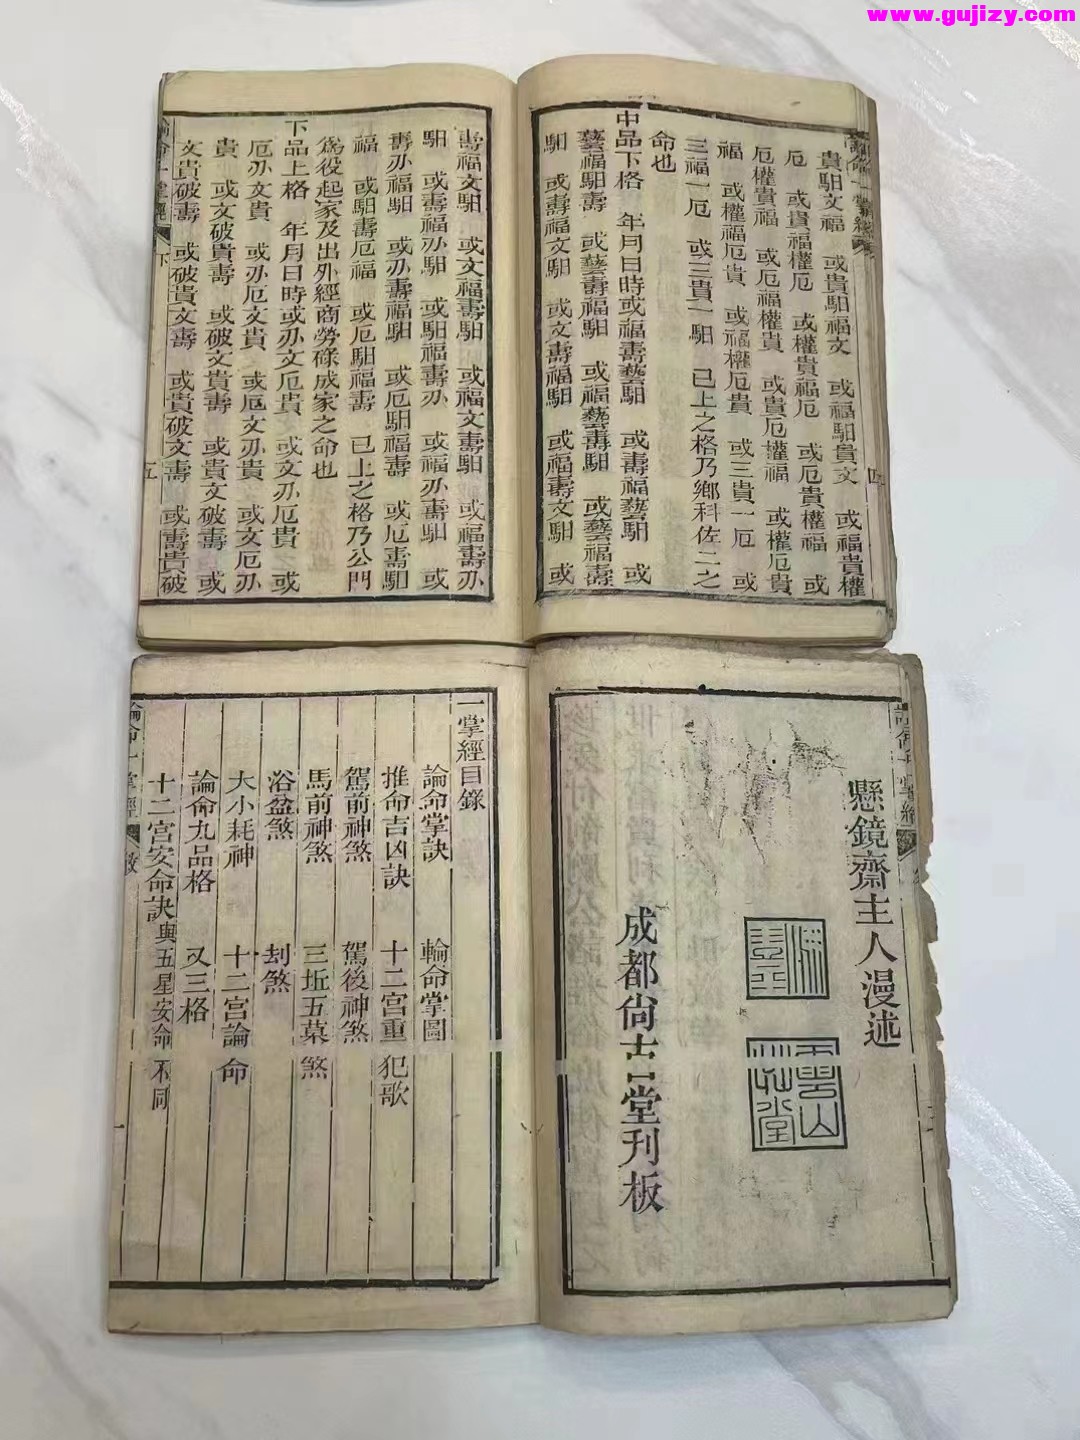 www.gujizy.com
貴馹文福　或貴馹福文　或福馹貴文　或福貴權
厄　或貴福權厄　或福權貴福厄　或厄貴權福　或
厄權貴福　或厄福權貴　或貴厄權福　或權厄貴
福　或權福厄貴　或福權厄貴　或三貴一厄　或
三福一厄　或三貴一馹　已上之格乃鄉科佐二之
命也
中品下格　年月日時或福壽藝馹　或壽福藝馹　或
藝福馹壽　或藝壽福馹　或福藝壽馹　或藝福壽
馹　或壽福文馹　或文壽福馹　或福壽文馹　或
四
壽福文馹　或文福壽馹　或福文壽馹　或福壽刅
馹　或壽福刅馹　或馹福壽刅　或福刅壽馹　或
壽刅福馹　或刅壽福馹　或厄馹福壽　或厄壽馹
福　或馹壽厄福　或厄馹福壽　已上之格乃公門
爲役起家及出外經商勞碌成家之命也
下品上格　年月日時或刅文厄貴　或文刅厄貴　或
厄刅文貴　或刅厄文貴　或厄文刅貴　或文厄刅
貴　或文破貴壽　或破文貴壽　或貴文破壽　或
文貴破壽　或破貴文壽　或貴破文壽　或壽貴破
論命一掌經　下　五
懸鏡齋主人漫述
成都尙古堂刊板
一掌經目錄
論命掌訣　輪命掌圖
推命吉凶訣　十二宮重犯歌
駕前神煞　駕後神煞
馬前神煞　三坵五墓煞
浴盆煞　刦煞
大小耗神　十二宮論命
論命九品格　又三格
十二宮安命訣與五星安命不同
論命一掌經　一